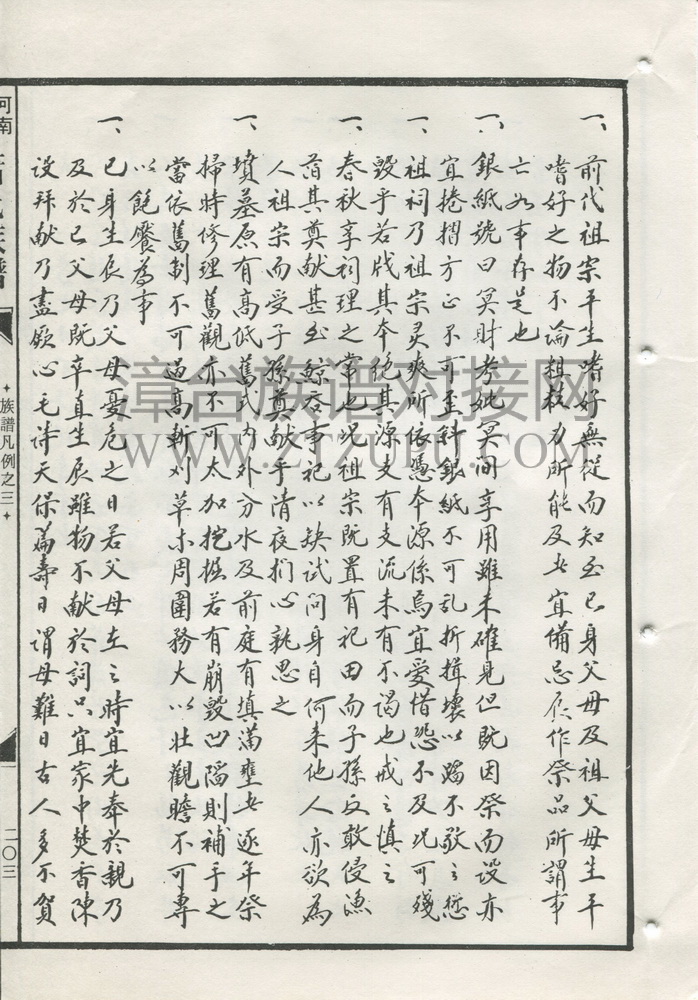 一、前代祖宗平生嗜好無從而知至已身父母及祖父母生平
嗜好之物不論粗較力所能及者宜備忌辰作祭品所謂事
亡如事存是也
一、銀紙號曰冥財考妣冥间享用雖未確見但既因祭而設亦
宜捲摺方正不可歪斜銀紙不可乱折揖壞以蹈不敬之愆
一、祖祠乃祖宗灵爽所依憑本源係焉宜爱惜恐不及况可殘
毀乎若戕其本絶其源支有支流未有不谒也戒之慎之
一、春秋享祠理之常也况祖宗既置有祀田而子孫反敢侵漁
莤其奠献甚至鲸吞事祀以缺试问身自何来他人亦欲為
人祖宗而受子孫奠献乎清夜扪心孰思之
一、墳墓原有高低舊式内外分水及前庭有填滿壅者逐年祭
掃時修理舊觀亦不可太加挖掘若有崩毀凹陷則補手之
當依舊制不可過高斬刈草木周圍務大以壯觀瞻不可專
以飽饜為事
一、已身生辰乃父母憂危之日若父母在之時宜先奉於親乃
及於已父母既卒直生辰雖物不献於詞只宜家中焚香陳
设拜献乃盡厥心毛诗天保篇壽日謂母難日古人多不賀
河南
族譜
族譜凡例之三
二〇三
漳台族谱对接网
WWW.ZTZUPU.COM